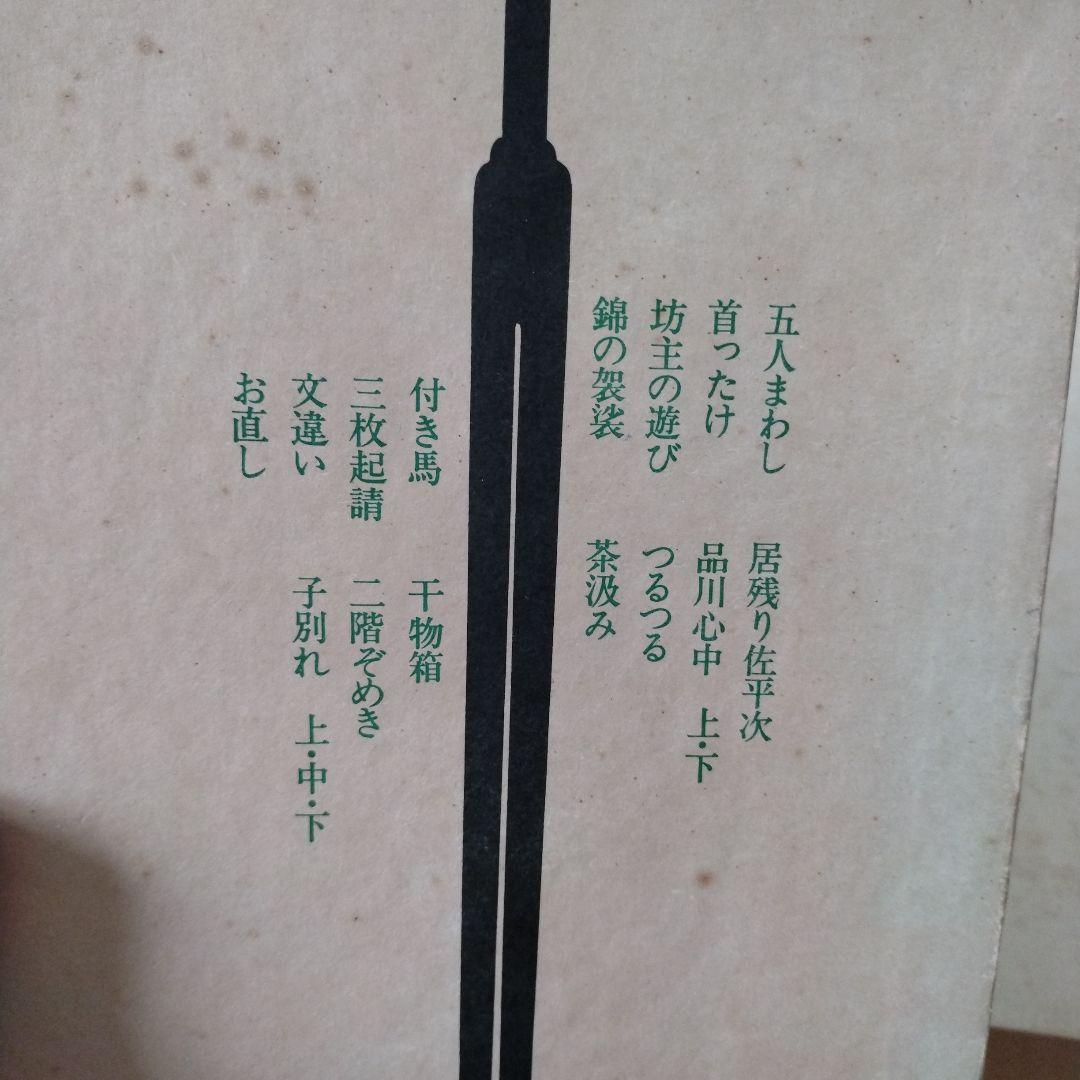 五人まわし
首ったけ
坊主の遊び
錦の袈裟
居残り佐平次
品川心中 上・下
つるつる
茶汲み
付き馬
三枚起請
文違い
お直し
干物箱
二階ぞめき
子別れ 上・中・下